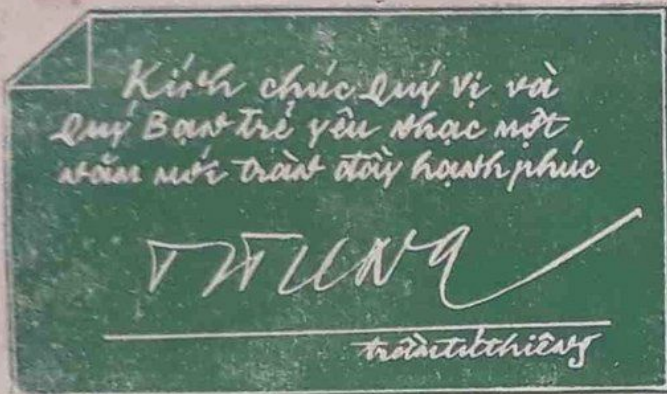 Kính chúc quý vị và
quý Bạn trẻ yêu nhạc một
năm mới tràn đầy hạnh phúc
trầm tử thiêng